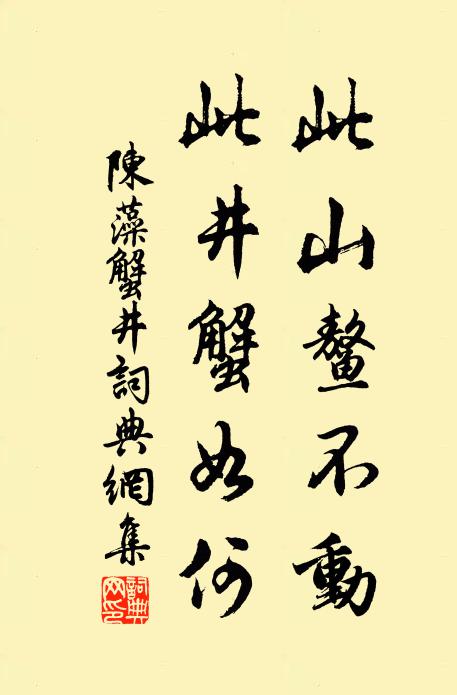 此山鰲不動
此井蟹如何
陳藻蟹井詞典網集
詞典網印